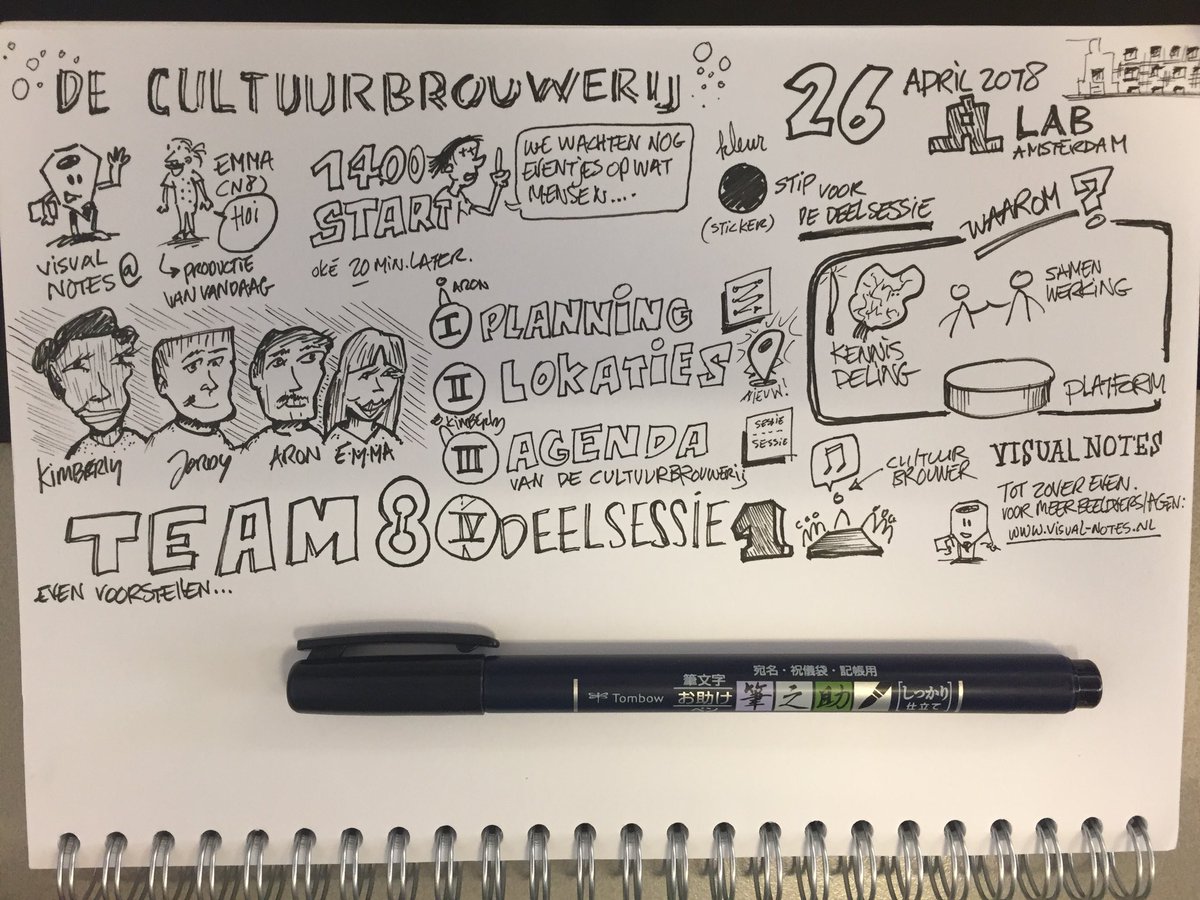 DE CULTUURBROUWERIJ
26 APRIL 2018
LAB
AMSTERDAM
VISUAL
NOTES @
EMMA
(N8)
HOI
PRODUCTIE
VAN VANDAAG
1400
START
WE WACHTEN NOG
EVENTJES OP WAT
MENSEN....
OKÉ 20 MIN. LATER.
kleur
(STICKER)
STIP VOOR
DE DEELSESSIE
WAAROM?
KENNIS
DELING
SAMEN
WERKING
PLATFORM
Kimberly
Jordy
ARON
E.M.MA
TEAM 8
EVEN VOORSTELLEN...
ARON
I PLANNING
II LOKATIES
NIEUW!
KIMBERLY
III AGENDA
VAN DE CULTUURBROUWERIJ
SESSIE
SESSIE
IV DEELSESSIE 1
CULTUUR
BROUWER
VISUAL NOTES
TOT ZOVER EVEN.
VOOR MEER BEELDVERSLAGEN:
WWW.VISUAL-NOTES.NL
Tombow
筆文字
お助け
ペン
宛名・祝儀袋・記帳用
筆之助
しっかり
仕立て